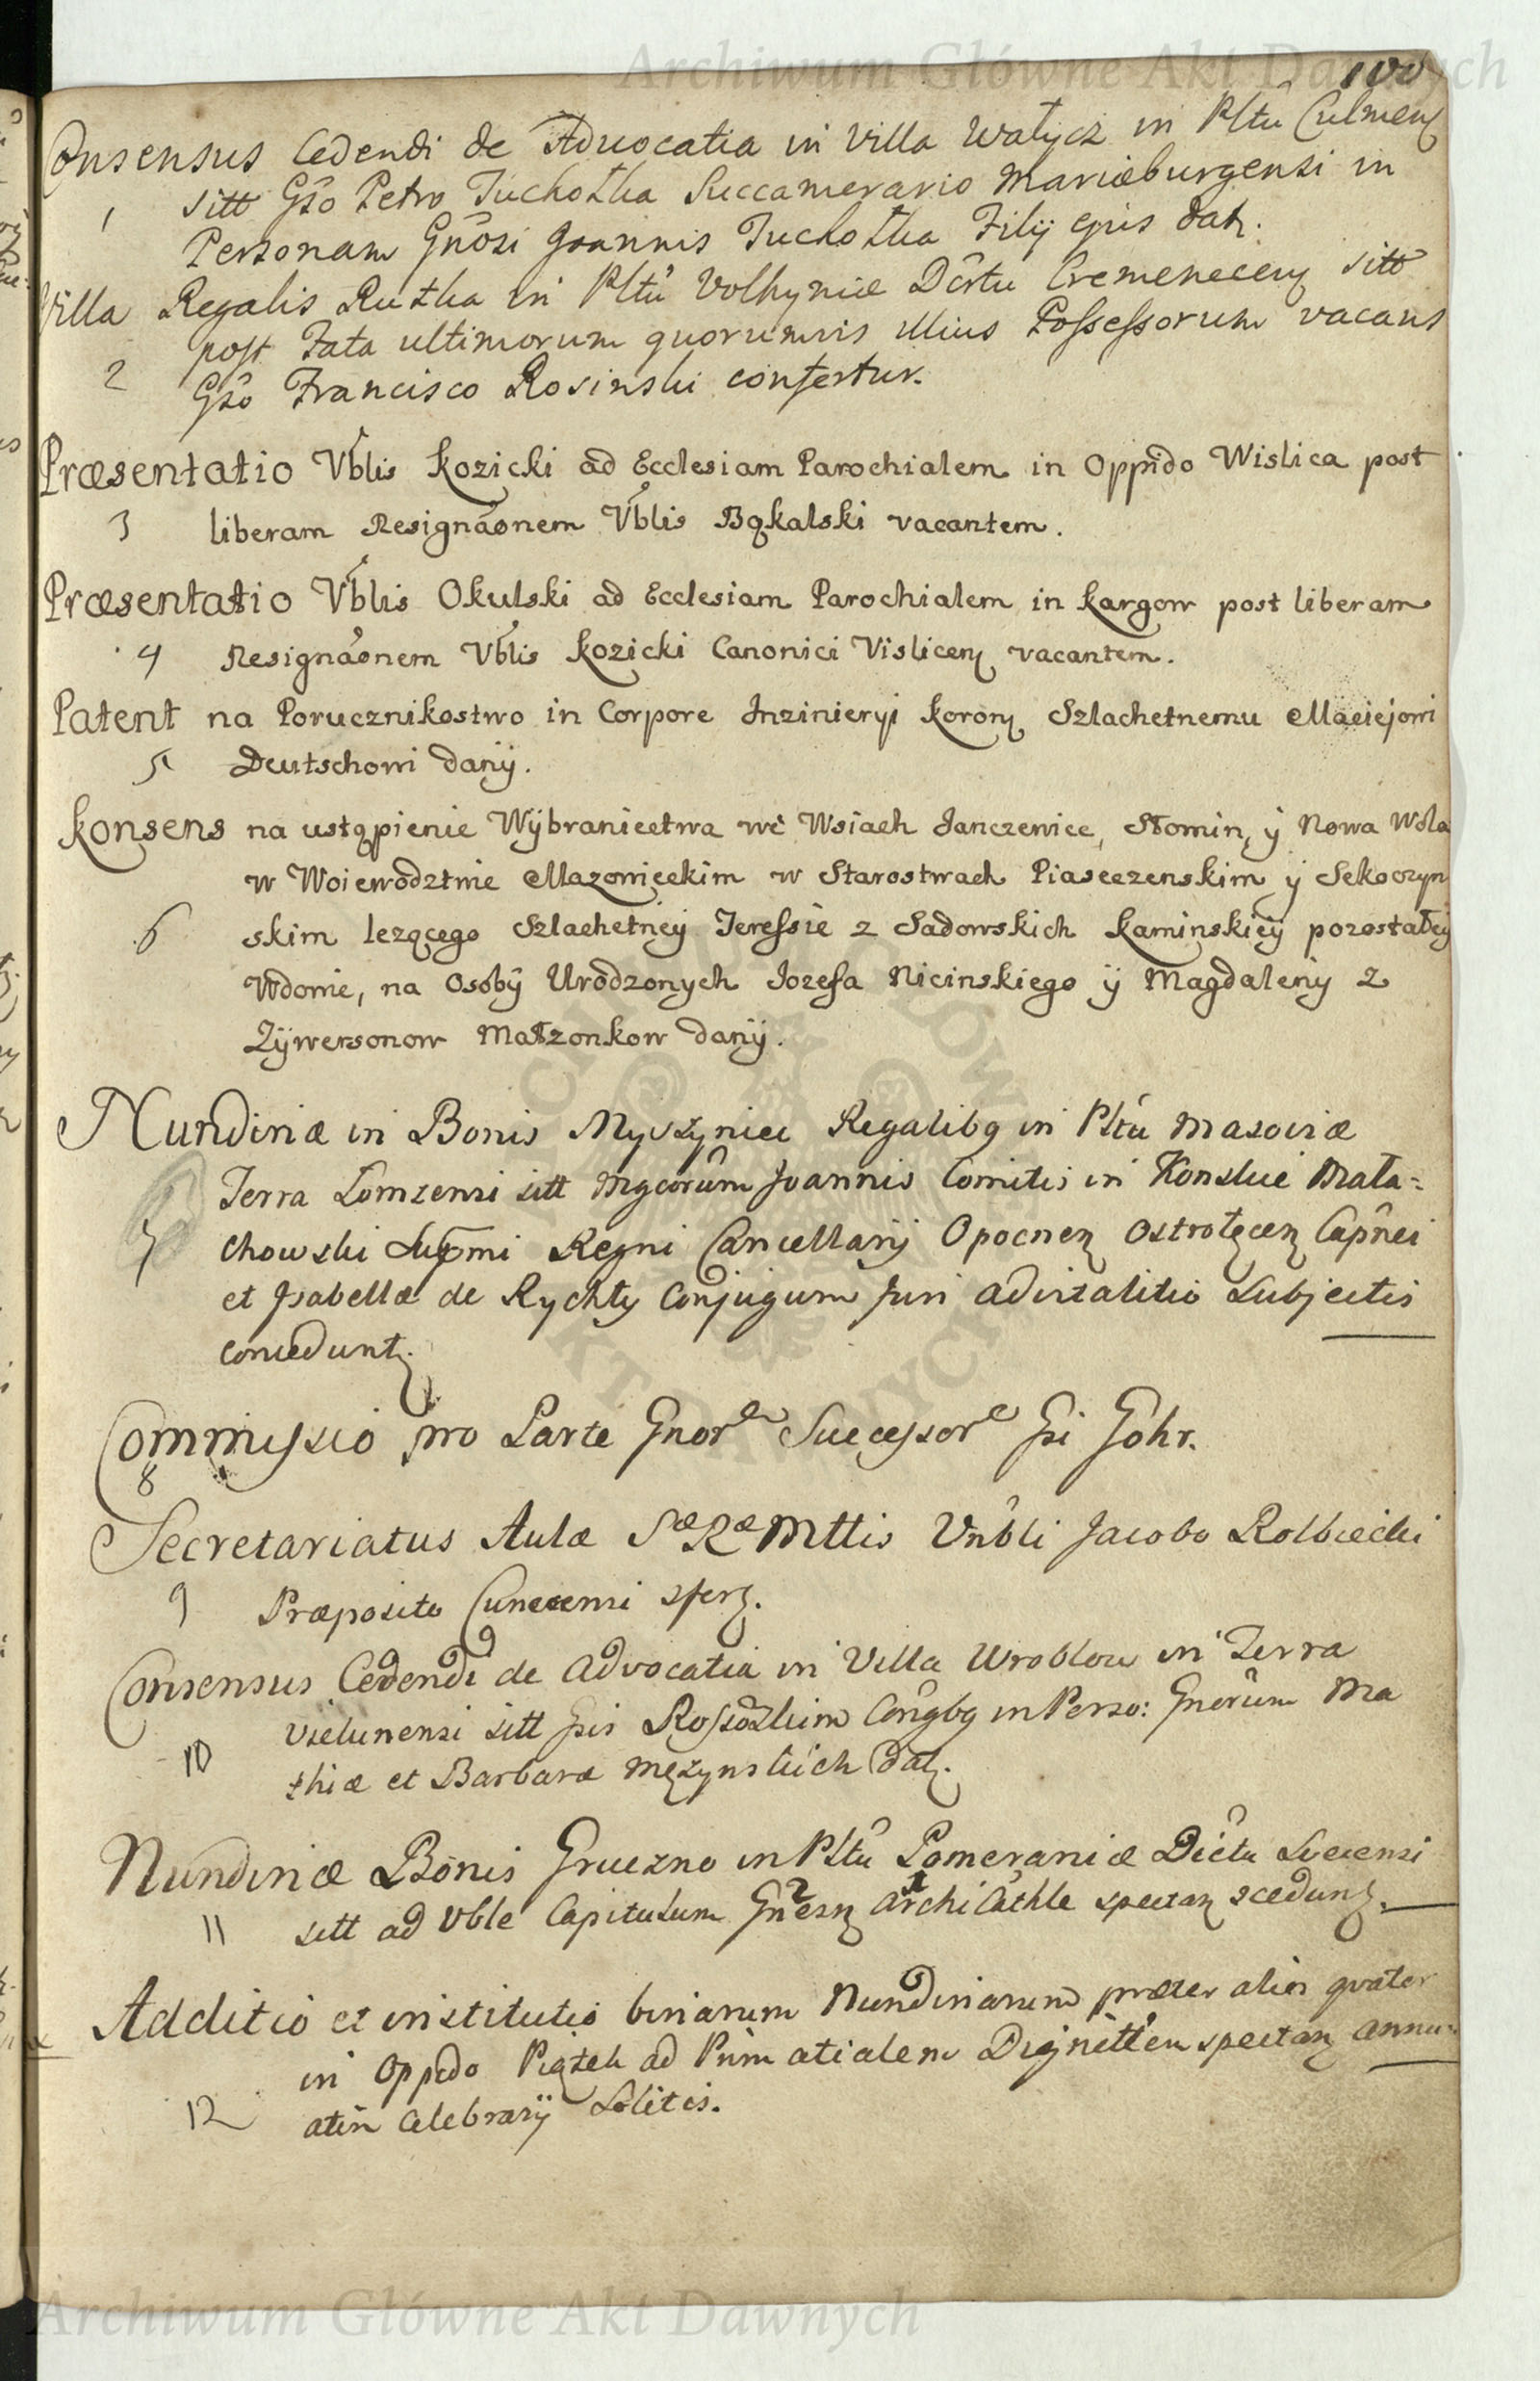 Archiwum Główne Akt Dawnych
100
Consensus Cedendi de Advocatia in Villa Watycz in Pltu Culmen
sitt Gso Petro Tuchołka Succamerario Mariæburgensi in
1
Personam Gnosi Joannis Tuchołka Filij ejus datz.
Villa Regalis Rutka in Pltu Volhyniæ Dcrtu Cremenecen sitt
post Fata ultimorum quorumvis illius Possessorum vacans
2
Gso Francisco Rosinski confertur.
Præsentatio Vblis Kozicki ad Ecclesiam Parochialem in Oppido Wislica post
3 liberam Resignaonem Vblis Bąkalski vacantem.
Præsentatio Vblis Okulski ad Ecclesiam Parochialem in Kargow post liberam
4 Resignaonem Vblis Kozicki Canonici Vislicen vacantem.
Patent na Porucznikostwo in Corpore Inzinieryi Koron Szlachetnemu Maciejowi
5 Deutschowi dany.
Konsens na ustąpienie Wÿbraniectwa we Wsiach Janczewice, Słomin, ÿ Nowa Wola
w Woiewodztwie Mazowieckim w Starostwach Piaseczenskim ÿ Sekoczyn
6 skim lezącego Szlachetneÿ Teressie z Sadowskich Kaminskieÿ pozostałeÿ
Wdowie, na Osobÿ Urodzonych Jozefa Nicinskiego ÿ Magdalenÿ z
Zÿwersonow Małzonkow danÿ.
Nundinæ in Bonis Myszyniec Regalibq in Pltu Masoviæ
Terra Lomzensi sitt Mgcorum Joannis Comitis in Konskie Mała=
7 chowski Supmi Regni Cancellarij Opocnen Ostrołęcen Capnei
et Isabellæ de Rychty Conjugum Juri advitalitio Subjectis
conceduntz.
Commissio pro Parte Gnor Successor Gsi Gohr.
8
Secretariatus Aulæ Sæ Ræ Mttis Vnbli Jacobo Kolbiecki
9 Præposito Cunecensi sfertz.
Consensus Cedendi de Advocatia in Villa Wroblow in Terra
Vielunensi sitt Gsis Rossoszkim Congbq in Perso: Gnorum Ma
10
thiæ et Barbaræ Mężynskich datz.
Nundinæ Bonis Gruczno in Pltu Pomeraniæ Dictu Svecensi
2 1
11 sitt ad Vble Capitulum Gnesn Archi Cathle spectan sceduntz.
Additio et institutio binarum Nundinarum præter alias quater
in Oppido Piątek ad Primatialem Dignittem spectan annu=
12 atim Celebrarij Solitis.
Archiwum Główne Akt Dawnych